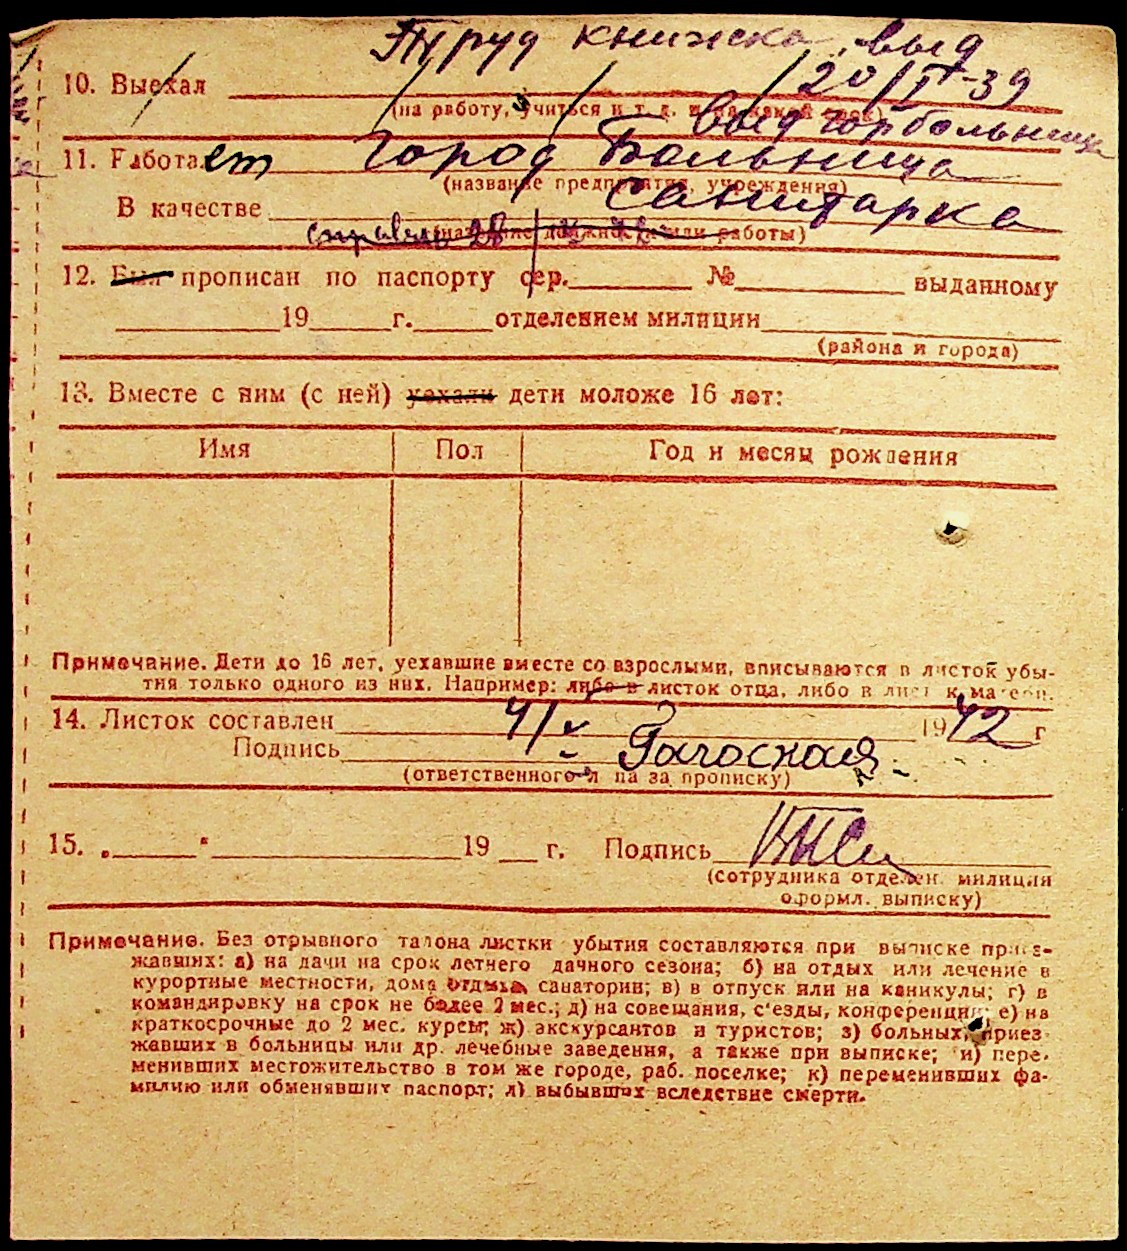 Труд книжка выд
10. Выехал 20/IX-39
(на работу, учиться и т. д. и на какой срок)
выд горбольница
11. Работает Город Больница
(название предприятия, учреждения)
В качестве санитарка
(название должности или работы)
12. Был прописан по паспорту сер. № выданному
19 г. отделением милиции
(района и города)
13. Вместе с ним (с ней) уехали дети моложе 16 лет:
Имя Пол Год и месяц рождения
Примечание. Дети до 16 лет, уехавшие вместе со взрослыми, вписываются в листок убы-
тия только одного из них. Например: либо в листок отца, либо в лист к матери.
14. Листок составлен 4/V 1942 г
Подпись
(ответственного л ца за прописку)
15. „ " 19 г. Подпись
(сотрудника отделен. милиции
оформл. выписку)
Примечание. Без отрывного талона листки убытия составляются при выписке приез-
жавших: а) на дачи на срок летнего дачного сезона; б) на отдых или лечение в
курортные местности, дома отдыха, санатории; в) в отпуск или на каникулы; г) в
командировку на срок не более 2 мес.; д) на совещания, с'езды, конференции; е) на
краткосрочные до 2 мес. курсы; ж) экскурсантов и туристов; з) больных, приез-
жавших в больницы или др. лечебные заведения, а также при выписке; и) пере-
менивших местожительство в том же городе, раб. поселке; к) переменивших фа-
милию или обменявших паспорт; л) выбывших вследствие смерти.